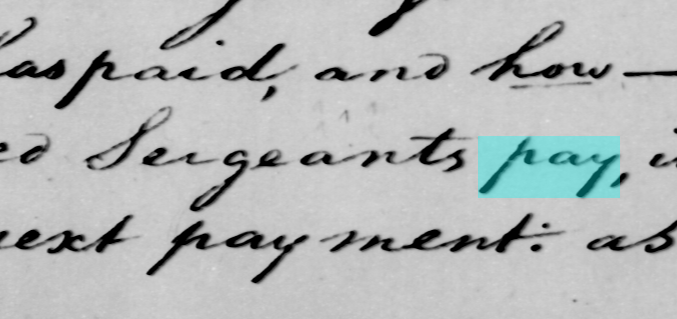 has paid, and how—
Sergeants pay,
next payment: as